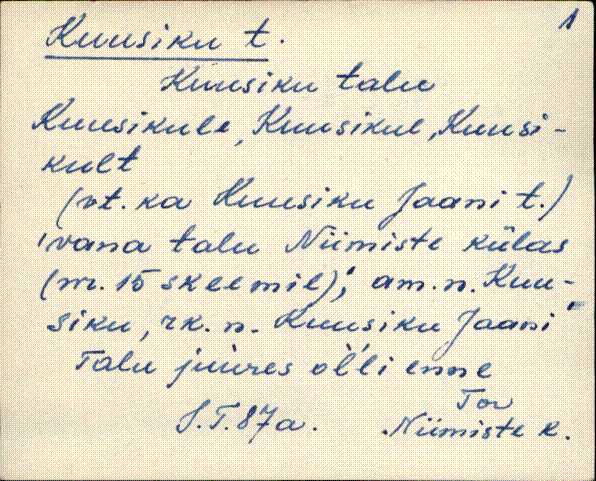 1
Kuusiku t.
Kuusiku talu
Kuusikule, Kuusikul, Kuusi-
kult
(vt. ka Kuusiku Jaani t.)
'vana talu Niimiste külas
(nr. 15 skeemil)'; am. n. Kuu-
siku, rk. n. Kuusiku Jaani
Talu juures olli enne
Tor
S.T. 87a. Niimiste k.